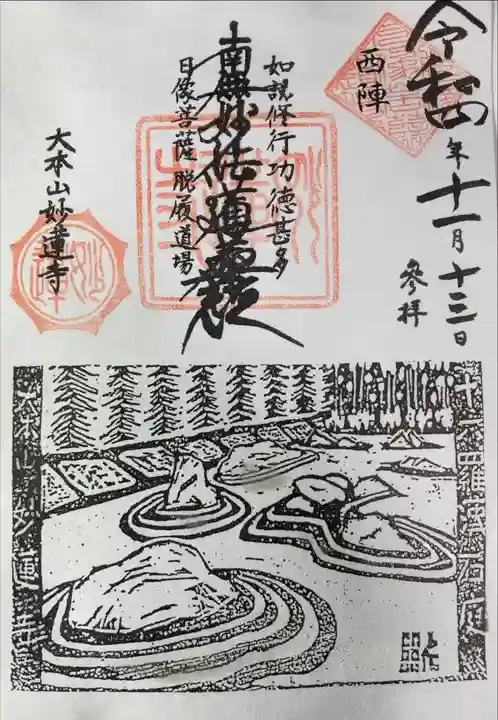 令和四年十一月十三日
參拝
西陣
如説修行功徳甚多
南無妙法蓮華経
日像菩薩脱履道場
大本山妙蓮寺
妙蓮
十六羅漢石庭
大本山妙蓮寺